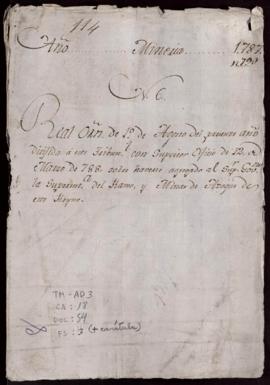 114
Año Mineria 1787
N. 6.
Real Orn. de 1º. de Agosto del presente año
dirigida á este Tribunl. con Superior Oficio de 12. de
Marzo de 788. sobre haverse agregado al Supr. Gov.no
la Superintd.a del Ramo, y Minas de Azogue de
este Reyno.
TM-AD3
CA: 18
DOC: 54
FS: 3 (+ carátula)